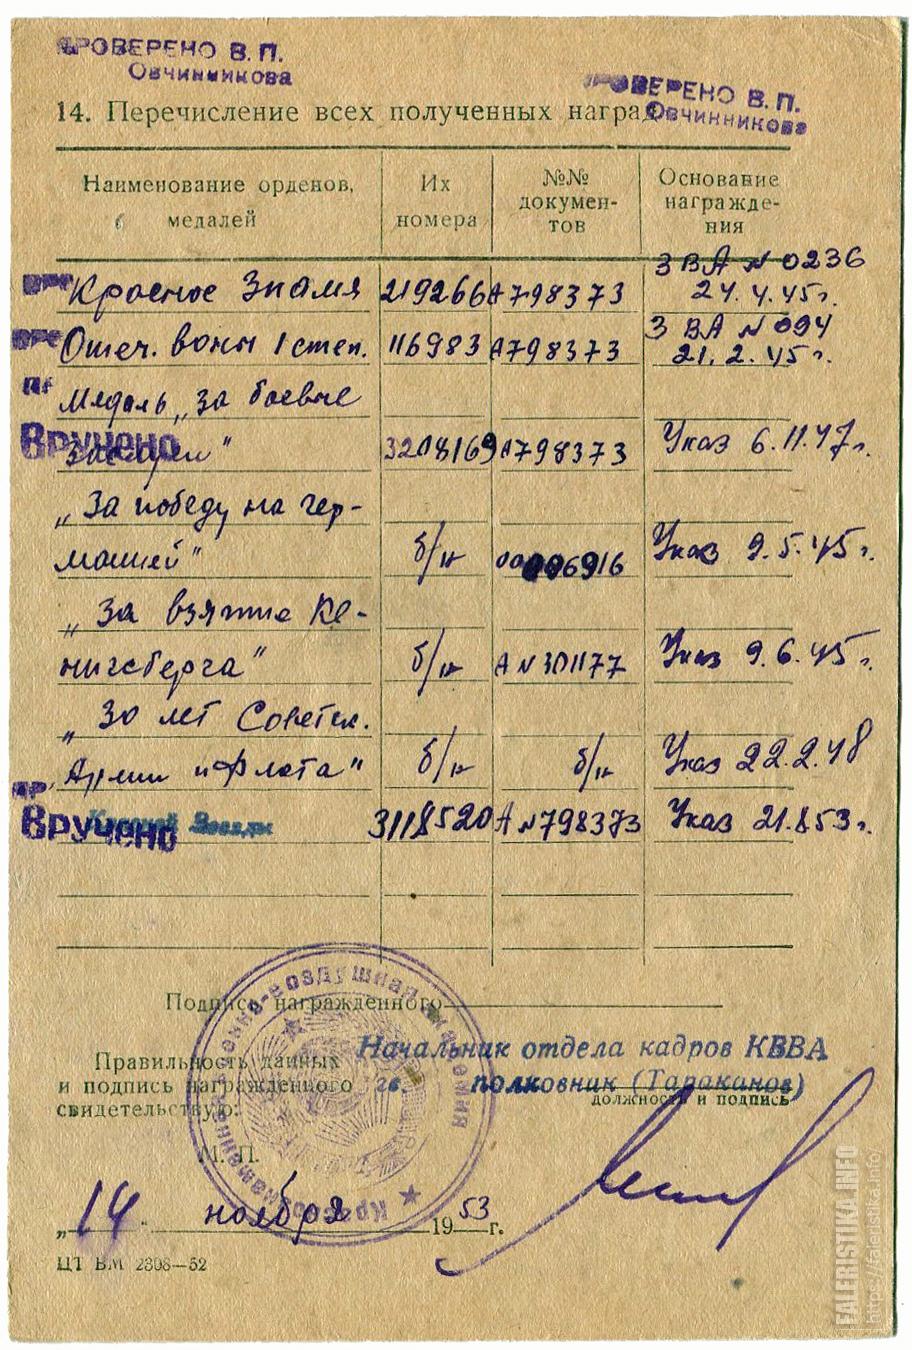 ПРОВЕРЕНО В. П.
Овчинникова
ПРОВЕРЕНО В. П.
Овчинникова
14. Перечисление всех полученных наград
Наименование орденов, медалей
Их номера
№№ докумен-тов
Основание награжде-ния
Красное Знамя 219266 А798373 3 ВА N 0236 24.4.45г.
Отеч. войны 1 степ. 116983 А798373 3 ВА N 094 21.2.45г.
Медаль „За боевые
Вручено
заслуги" 3208169 А798373 Указ 6.11.47г.
„За победу на гер-
манией" б/н 006916 Указ 9.5.45г.
„За взятие Ке-
нигсберга" б/н А N 301177 Указ 9.6.45г.
„30 лет Советск.
Армии и Флота" б/н б/н Указ 22.2.48
Вручено
Красной Звезды 3118520 А N 798373 Указ 21.8.53г.
Подпись награжденного
Правильность данных
и подпись награжденного
свидетельствую:
Начальник отдела кадров КВВА
гв. полковник (Тараканов)
должность и подпись
М. П.
Краснознаменная военно-воздушная академия
„14" ноября 1953 г.
ЦТ ВМ 2308—52
FALERISTIKA.INFO
https://faleristika.info/